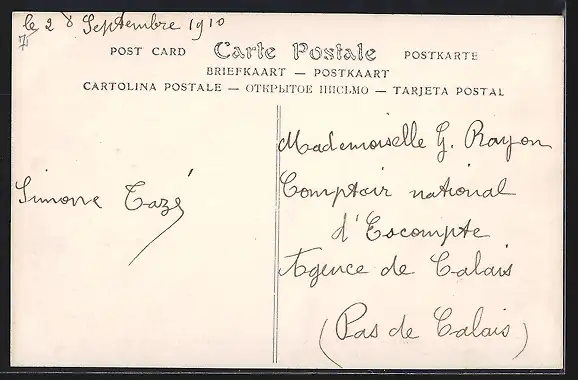 le 28 Septembre 1910
POST CARD Carte Postale POSTKARTE
BRIEFKAART — POSTKAART
CARTOLINA POSTALE — ОТКРЫТОЕ ПИСЬМО — TARJETA POSTAL
Mademoiselle G. Rayon
Comptoir national
d'Escompte
Agence de Calais
(Pas de Calais)
Simone Tazé